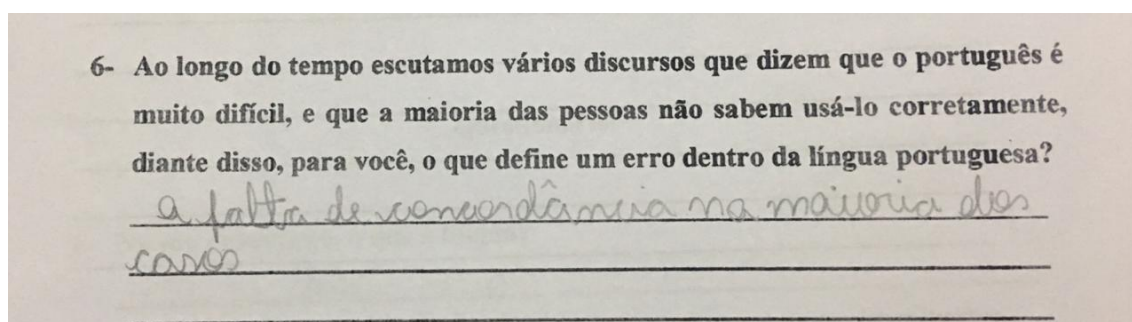 6- Ao longo do tempo escutamos vários discursos que dizem que o português é
muito difícil, e que a maioria das pessoas não sabem usá-lo corretamente,
diante disso, para você, o que define um erro dentro da língua portuguesa?
a falta de concordância na maioria dos
casos